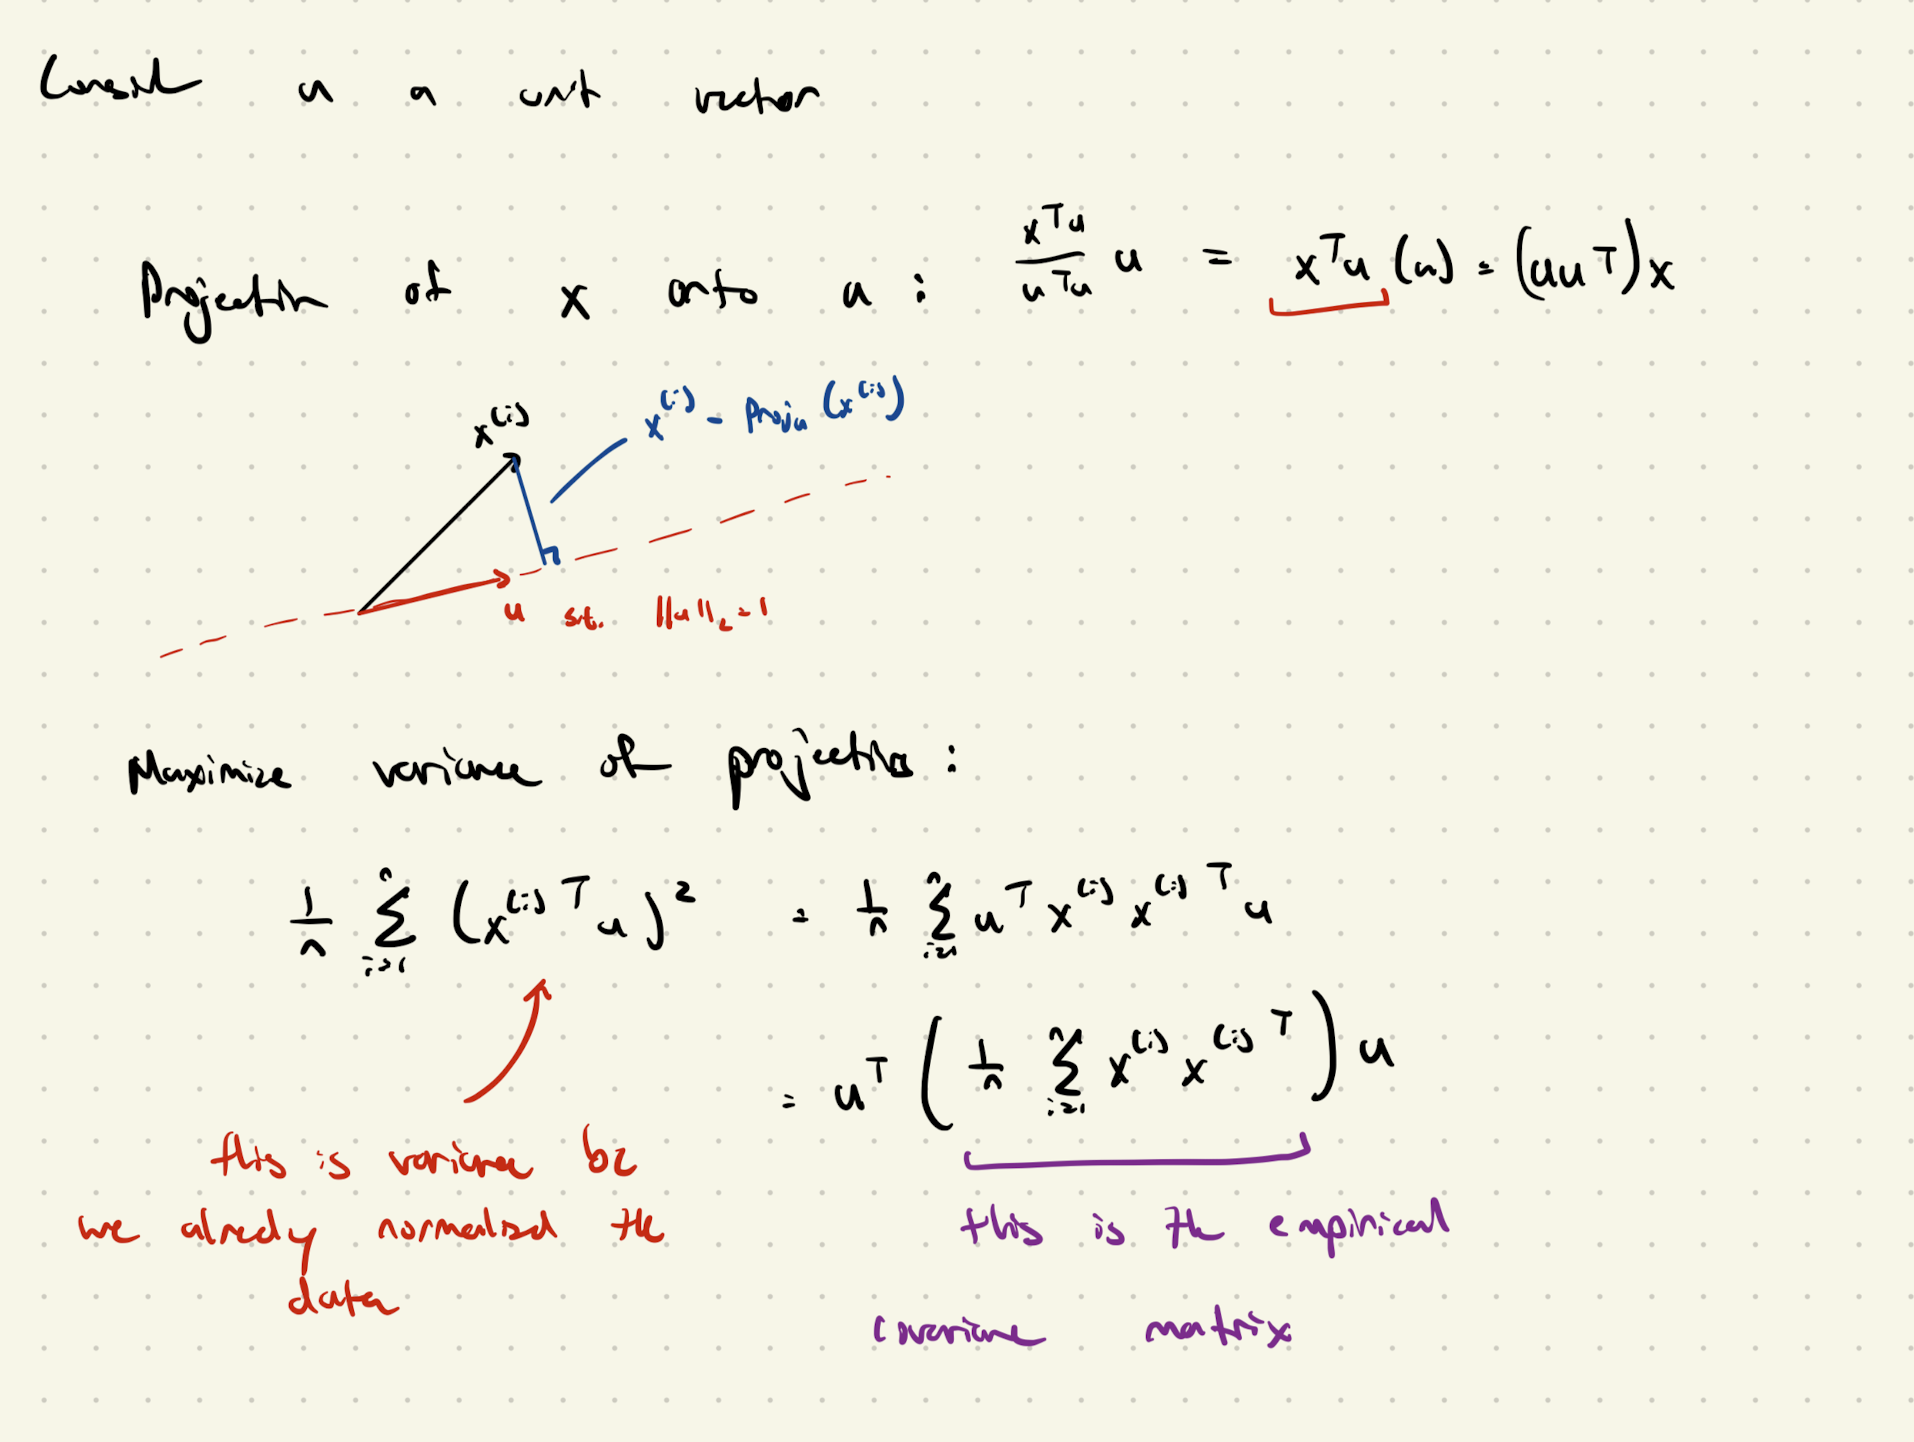 Consider u a unit vector
Projection of x onto u : x^T u / u^T u u = x^T u (u) = (uu^T) x
x^(i)
x^(i) - Proj_u (x^(i))
u s.t. ||u||_2 = 1
Maximize variance of projections :
1/n Σ_{i=1}^n (x^(i)T u)^2 = 1/n Σ_{i=1}^n u^T x^(i) x^(i)T u
= u^T ( 1/n Σ_{i=1}^n x^(i) x^(i)T ) u
this is variance bc
we already normalized the
data
this is the empirical
covariance matrix